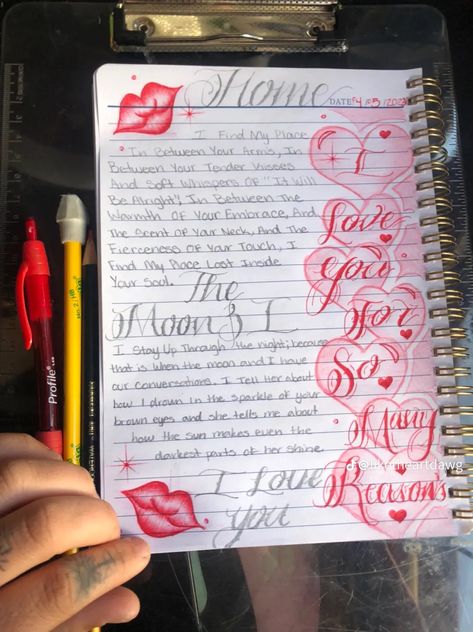 Home
DATE: 4/05/2023
I Find My Place
In Between Your Arms, In
Between Your Tender Kisses
And Soft Whispers Of "It Will
Be Alright", In Between The
Warmth Of Your Embrace, And
The Scent Of Your Neck, And The
Fierceness Of Your Touch, I
Find My Place Lost Inside
Your Soul.
The
Moon & I
I Stay Up Through the night; because
that is when the moon and I have
our conversations. I Tell her about
how I drown in the sparkle of your
brown eyes and she tells me about
how the sun makes even the
darkest parts of her shine.
I Love
you
I
Love
You
For
So
Many
Reasons
Profile
NO. 2/HB